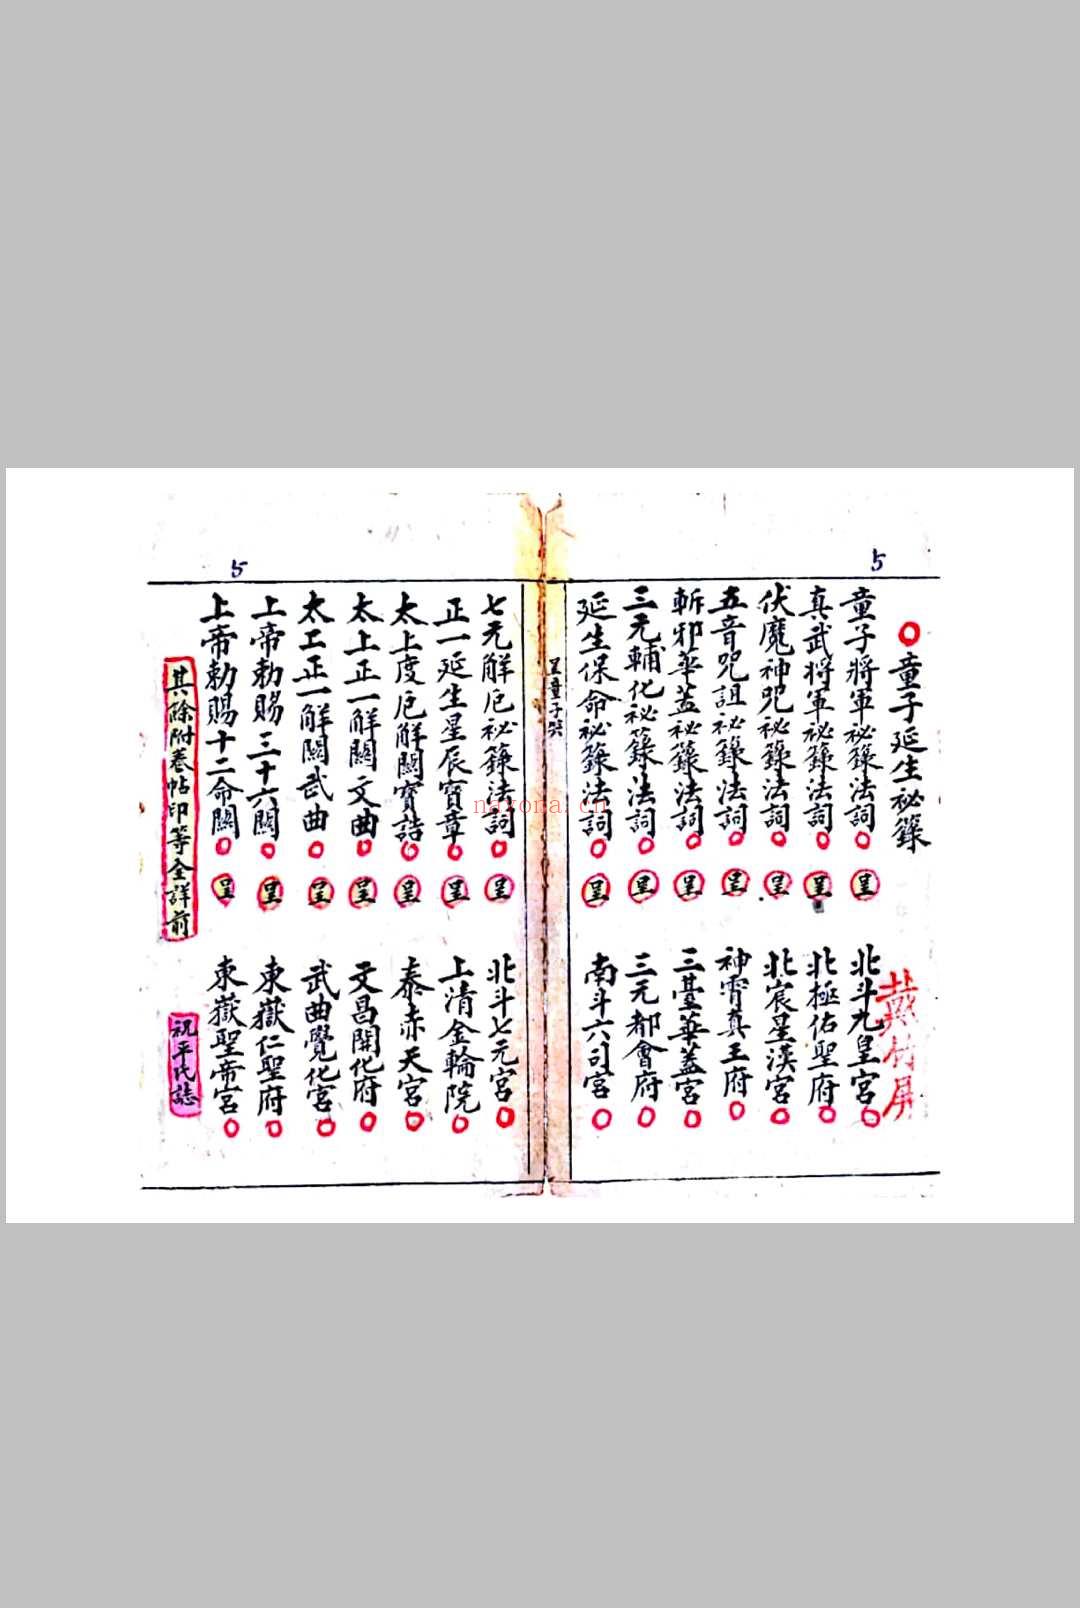 5
童子延生祕籙
戴竹屏
童子將軍祕籙法詞 呈 北斗九皇宮
真武將軍祕籙法詞 呈 北極佑聖府
伏魔神咒祕籙法詞 呈 北宸星漢宮
五音咒詛祕籙法詞 呈 神霄真王府
斬邪華盖祕籙法詞 呈 三臺華盖宮
三元輔化祕籙法詞 呈 三元都會府
延生保命祕籙法詞 呈 南斗六司宮
呈童子
5
七元解厄祕籙法詞 呈 北斗七元宮
正一延生星辰寶章 呈 上清金輪院
太上度厄解關寶誥 呈 泰赤天宮
太上正一解關文曲 呈 文昌開化府
太工正一解關武曲 呈 武曲覺化宮
上帝勅賜三十六關 呈 東嶽仁聖府
上帝勅賜十二命關 呈 東嶽聖帝宮
其餘附卷帖印等全詳前
祝平氏誌
nayona.cn